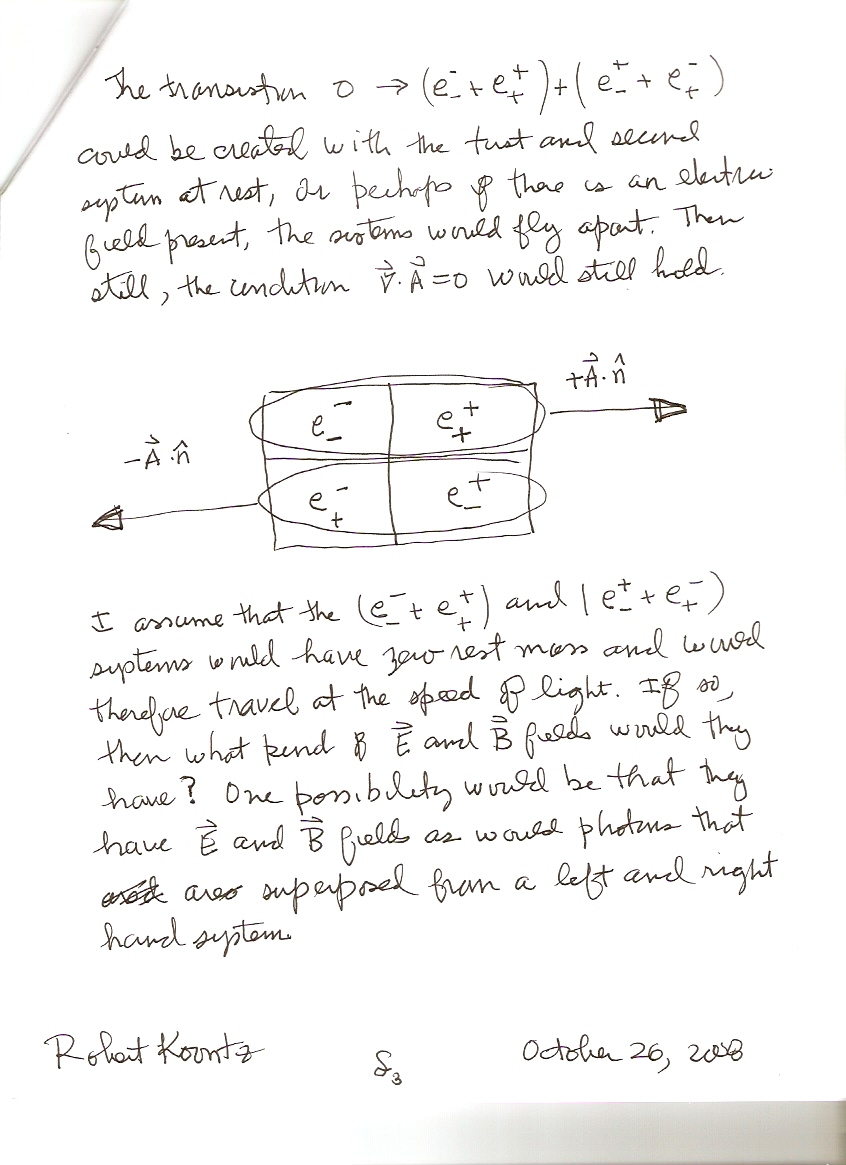 The transistion 0 → (e₋⁻ + e₊⁺) + (e₋⁺ + e₊⁻)
could be created with the first and second
system at rest, or perhaps if there is an electric
field present, the systems would fly apart. Then
still, the condition ∇⃗·A⃗ = 0 would still hold.
+A⃗·n̂
e₋⁻ e₊⁺
-A⃗·n̂
e₊⁻ e₋⁺
I assume that the (e₋⁻ + e₊⁺) and (e₋⁺ + e₊⁻)
systems would have zero rest mass and would
therefore travel at the speed of light. If so,
then what kind of E⃗ and B⃗ fields would they
have? One possibility would be that they
have E⃗ and B⃗ fields as would photons that
are superposed from a left and right
hand system.
Robert Koontz
S₃
October 26, 2008